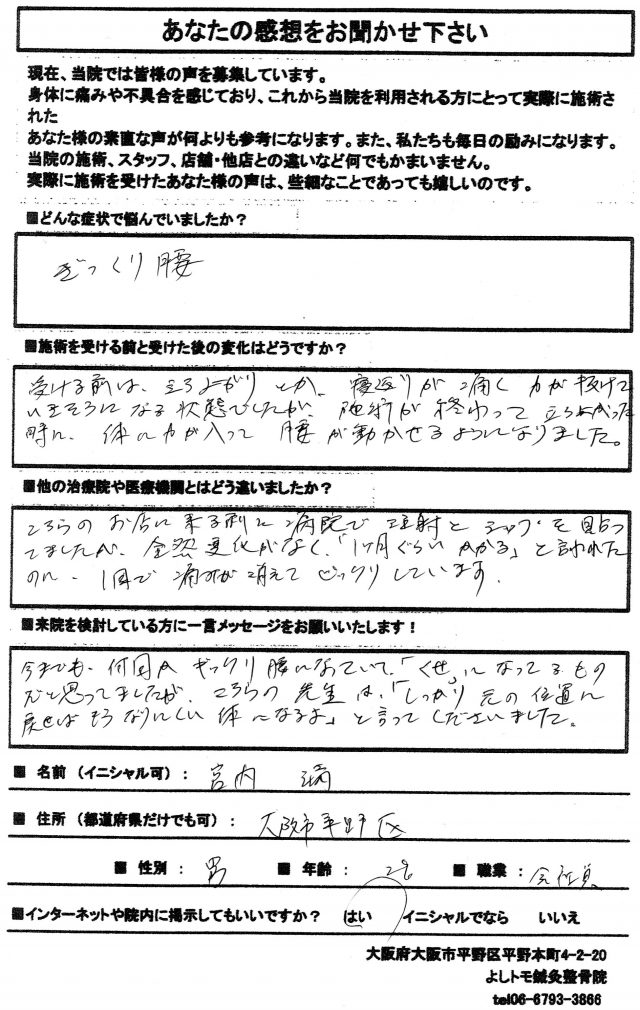 あなたの感想をお聞かせ下さい
現在、当院では皆様の声を募集しています。
身体に痛みや不具合を感じており、これから当院を利用される方にとって実際に施術さ
れた
あなた様の素直な声が何よりも参考になります。また、私たちも毎日の励みになります。
当院の施術、スタッフ、店舗・他店との違いなど何でもかまいません。
実際に施術を受けたあなた様の声は、些細なことであっても嬉しいのです。
■どんな症状で悩んでいましたか？
ぎっくり腰
■施術を受ける前と受けた後の変化はどうですか？
受ける前は、立ち上がり とか、寝返りが 痛く 力が抜けて
いきそうになる状態でしたが、施術が 終わって 立ち上がった
時に、体に力が入って 腰が動かせるようになりました。
■他の治療院や医療機関とはどう違いましたか？
こちらの お店に 来る前に 病院で 注射と シップを貼っ
てましたが、全然変化がなく、「1ヶ月ぐらい かかる」と言われた
のに、1回で 痛みが消えて びっくりしています。
■来院を検討している方に一言メッセージをお願いいたします！
今までも、何回か ぎっくり腰になっていて、「くせ」になってるもの
だと思ってましたが、こちらの 先生は、「しっかり 元の位置に
戻せば もうなりにくい 体になるよ」と言ってくださいました。
■ 名前（イニシャル可）： 宮内
■ 住所（都道府県だけでも可）： 大阪市平野区
■ 性別： 男 ■ 年齢： ■ 職業： 会社員
■インターネットや院内に掲示してもいいですか？ はい イニシャルでなら いいえ
大阪府大阪市平野区平野本町4-2-20
よしトモ鍼灸整骨院
tel06-6793-3866